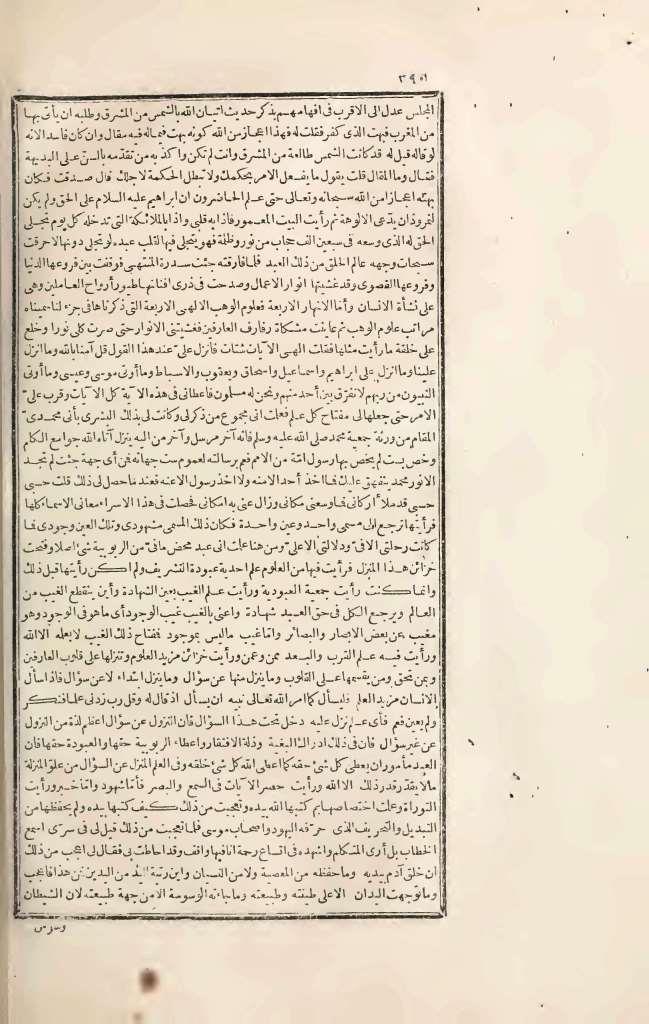 ٣٥١
المجلس عدل الى الاقرب فى افهامهم يذكر حديث اتيان الله بالشمس من المشرق وطلبه ان يأتى بها
من المغرب فبهت الذى كفر فقلت له فهذا اعجاز من الله كونه بهت فيما له فيه مقال وان كان فاسدا لانه
لو قاله قيل له قد كانت الشمس طالعة من المشرق وانت لم تكن وا كذبه من تقدّمه بالسنّ على البديهة
فقال وما المقال قلت يقول ما يفعل الامر بحكمك ولا تبطل الحكمة لاجلك قال صدقت فكان
بهته اعجازا من الله سبحانه وتعالى حتى علم الحاضرون ان ابراهيم عليه السلام على الحق ولم يكن
لنمروذ ان يدّعى الالوهة ثم رأيت البيت المعمور فاذا به قلبى واذا بالملائكة التى تدخله كل يوم تجلى
الحق له الذى وسعه فى سبعين الف حجاب من نور وظلمة فهو يتجلى فيها لقلب عبده لو تجلى دونها لاحرقت
سبحات وجهه عالم الخلق من ذلك العبد فلما فارقته جئت سدرة المنتهى فوقفت بين فروعها الدنيا
وفروعها القصوى وقد غشيتها انوار الاعمال وصدحت فى ذرى افنانها طيور أرواح العاملين وهى
على نشأة الانسان وأما الانهار الاربعة فعلوم الوهب الالهى الاربعة التى ذكرناها فى جزء لنا سميناه
مراتب علوم الوهب ثم عاينت متكات رفارف العارفين فغشيتنى الانوار حتى صرت كلى نورا وخلع
على خلعة ما رأيت مثلها فقلت الهى الآيات شتات فانزل علىّ عند هذا القول قل آمنا بالله وما انزل
علينا وما انزل على ابراهيم واسماعيل واسحاق ويعقوب والاسباط وما أوتى موسى وعيسى وما أوتى
النبيون من ربهم لا نفرّق بين أحد منهم ونحن له مسلمون فاعطانى فى هذه الآية كل الآيات وقرب علىّ
الامر حتى جعلها لى مفتاح كل علم فعلمت انى مجموع من ذكر لى وكانت لى بذلك البشرى بأنى محمدىّ
المقام من ورثة جمعية محمد صلى الله عليه وسلم فانه آخر مرسل وآخر من اليه ينزل آتاه الله جوامع الكلم
وخص بست لم يخص بها رسول امّة من الامم فعم برسالته لعموم ست جهاته فمن أى جهة جئت لم تجد
الا نور محمد يتفهق عليك فما اخذ أحد الا منه ولا اخذ رسول الا عنه فعند ما حصل لى ذلك قلت حسبى
حسبى قد ملأ أركانى فما وسعنى مكانى وزال عنى به امكانى فحصلت فى هذا الاسراء معانى الاسماء كلها
فرأيتها ترجع الى مسمى واحد وعين واحدة فكان ذلك المسمى مشهودى وتلك العين وجودى فما
كانت رحلتى الا فىّ ودلالتى الا علىّ ومن هنا علمت انى عبد محض ما فىّ من الربوبية شئ اصلا وفتحت
خزائن هذا المنزل فرأيت فيها من العلوم علم احدية عبودة التشريف ولم اكن رأيتها قبل ذلك
وانما كنت رأيت جمعية العبودية ورأيت علم الغيب بعين الشهادة وأين ينقطع الغيب من
العالم ويرجع الكل فى حق العبد شهادة واعنى بالغيب غيب الوجود أى ما هو فى الوجود وهو
مغيب عن بعض الابصار والبصائر واما غيب ما ليس بموجود فمفتاح ذلك الغيب لا يعلمه الا الله
ورأيت فيه علم القرب والبعد ممن وعمن ورأيت خزائن مزيد العلوم وتنزلها على قلوب العارفين
وبمن تتحق ومن يقسمها على القلوب وما ينزل منها عن سؤال وما ينزل ابتداء لا عن سؤال فاذا سأل
الانسان مزيد العلم فليسأل كما امر الله تعالى نبيه ان يسأل اذ قال له وقل رب زدنى علما فنكر
ولم يعين فعم فأى علم نزل عليه دخل تحت هذا السؤال فان النزول عن سؤال اعظم لذة من النزول
عن غير سؤال فان فى ذلك ادراك البغية وذلة الافتقار واعطاء الربوبية حقها والعبودة حقها فان
العبد مأمور ان يعطى كل شئ حقه كما اعطى الله كل شئ خلقه وفى العلم المنزل عن السؤال من علوّ المنزلة
ما لا يقدّر قدر ذلك الا الله ورأيت حصر الآيات فى السمع والبصر فأما شهود واما خبر ورأيت
التوراة وعلمت اختصاصها بم كتبها الله بيده وتعجبت من ذلك كيف كتبها بيده ولم يحفظها من
التبديل والتحريف الذى حرّفه اليهود واصحاب موسى فلما تعجبت من ذلك قيل لى فى سرّى اسمع
الخطاب بل أرى المتكلم واشهده فى اتساع رحمة انا فيها واقف وقد احاطت بى فقال لى اعجب من ذلك
ان خلق آدم بيديه وما حفظه من المعصية ولا من النسيان واين رتبة اليد من اليدين فمن هذا فاعجب
وما توجهت اليدان الا على طينته وطبيعته وما جاءته الوسوسة الا من جهة طبيعته لان الشيطان
وسوس